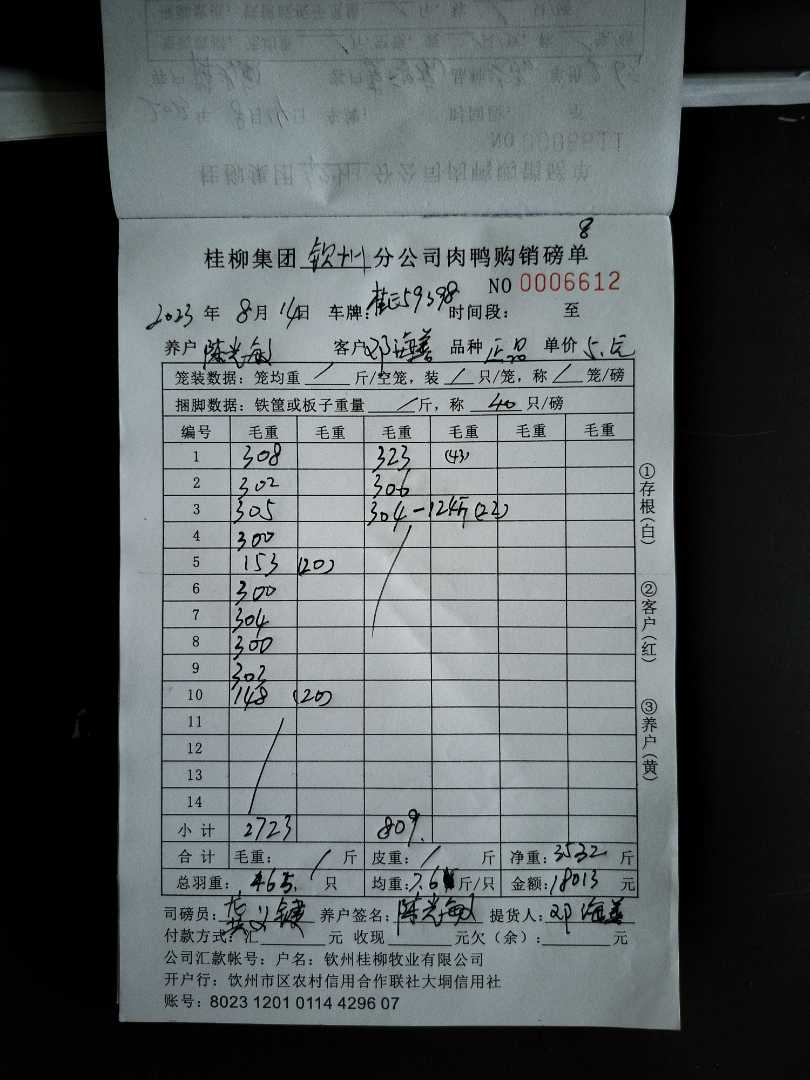 8
桂柳集团 钦州 分公司肉鸭购销磅单
NO 0006612
2023 年 8 月 14 日 车牌: 59398 时间段: 至
养户 陈光敏 客户 邓海善 品种 正品 单价 5.1元
笼装数据: 笼均重 / 斤/空笼, 装 / 只/笼, 称 / 笼/磅
捆脚数据: 铁筐或板子重量 / 斤, 称 40 只/磅
编号 毛重 毛重 毛重 毛重 毛重 毛重
1 308 323 (43)
2 302 306
3 305 304 -124斤(22)
4 300
5 153 (20)
6 300
7 304
8 300
9 303
10 148 (20)
11
12
13
14
小计 2723 809
合计 毛重: / 斤 皮重: / 斤 净重: 3532 斤
总羽重: 465 只 均重: 7.6 斤/只 金额: 18013 元
司磅员: 养户签名: 陈光敏 提货人: 邓海善
付款方式: 汇 元 收现 元欠(余): 元
公司汇款帐号: 户名: 钦州桂柳牧业有限公司
开户行: 钦州市区农村信用合作联社大垌信用社
账号: 8023 1201 0114 4296 07
①存根(白)
②客户(红)
③养户(黄)